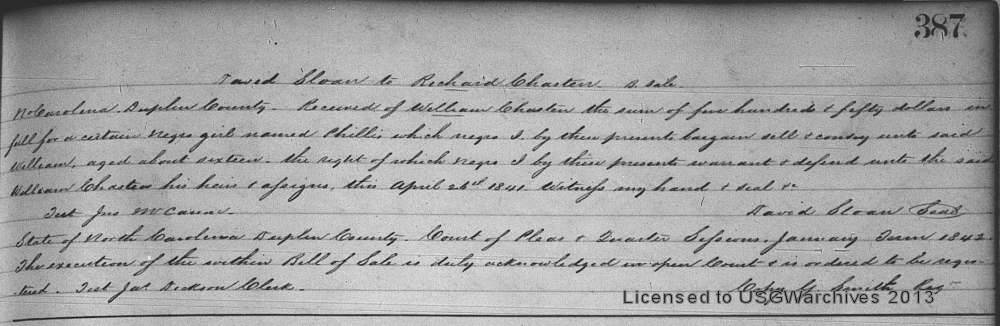 387.
David Sloan to Richard Chasten B. Sale.
No Carolina. Duplin County. Received of William Chasten the sum of five hundred & fifty dollars in
full for a certain negro girl named Phillis which negro I by these presents bargain sell & convey unto said
William, aged about sixteen. the right of which negro I by these presents warrant & defend unto the said
William Chasten his heirs & assigns, this April 1841. Witness my hand & seal &c
Test Jno McCanne. David Sloan Seal
State of North Carolina Duplin County. Court of Pleas & Quarter Sessions. January Term 1842.
The execution of the within Bill of Sale is duly acknowledged in open Court & is ordered to be regis-
tered. Test Jas Dickson Clerk. Smith Reg
Licensed to USGWarchives 2013